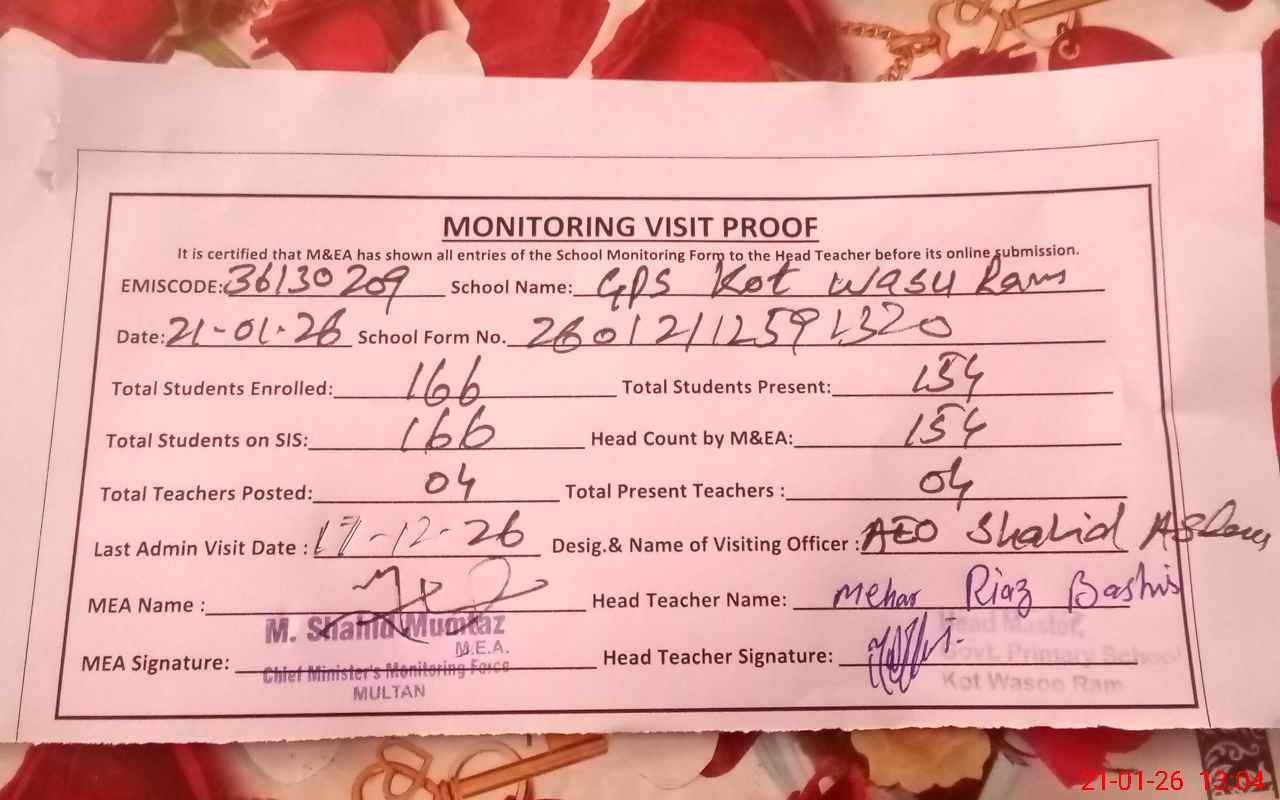 MONITORING VISIT PROOF
It is certified that M&EA has shown all entries of the School Monitoring Form to the Head Teacher before its online submission.
EMISCODE: 36130209 School Name: GPS Kot Wasu Ram
Date: 21-01-26 School Form No. 26012112591320
Total Students Enrolled: 166 Total Students Present: 154
Total Students on SIS: 166 Head Count by M&EA: 154
Total Teachers Posted: 04 Total Present Teachers : 04
Last Admin Visit Date : 17-12-26 Desig.& Name of Visiting Officer : AEO Shahid Aslam
MEA Name : Head Teacher Name: Mehar Riaz Bashir
M. Shahid Mumtaz
M.E.A.
Head Master,
MEA Signature: Head Teacher Signature:
Govt. Primary School
Chief Minister's Monitoring Force
Kot Wasoo Ram
MULTAN
21-01-26 13:04